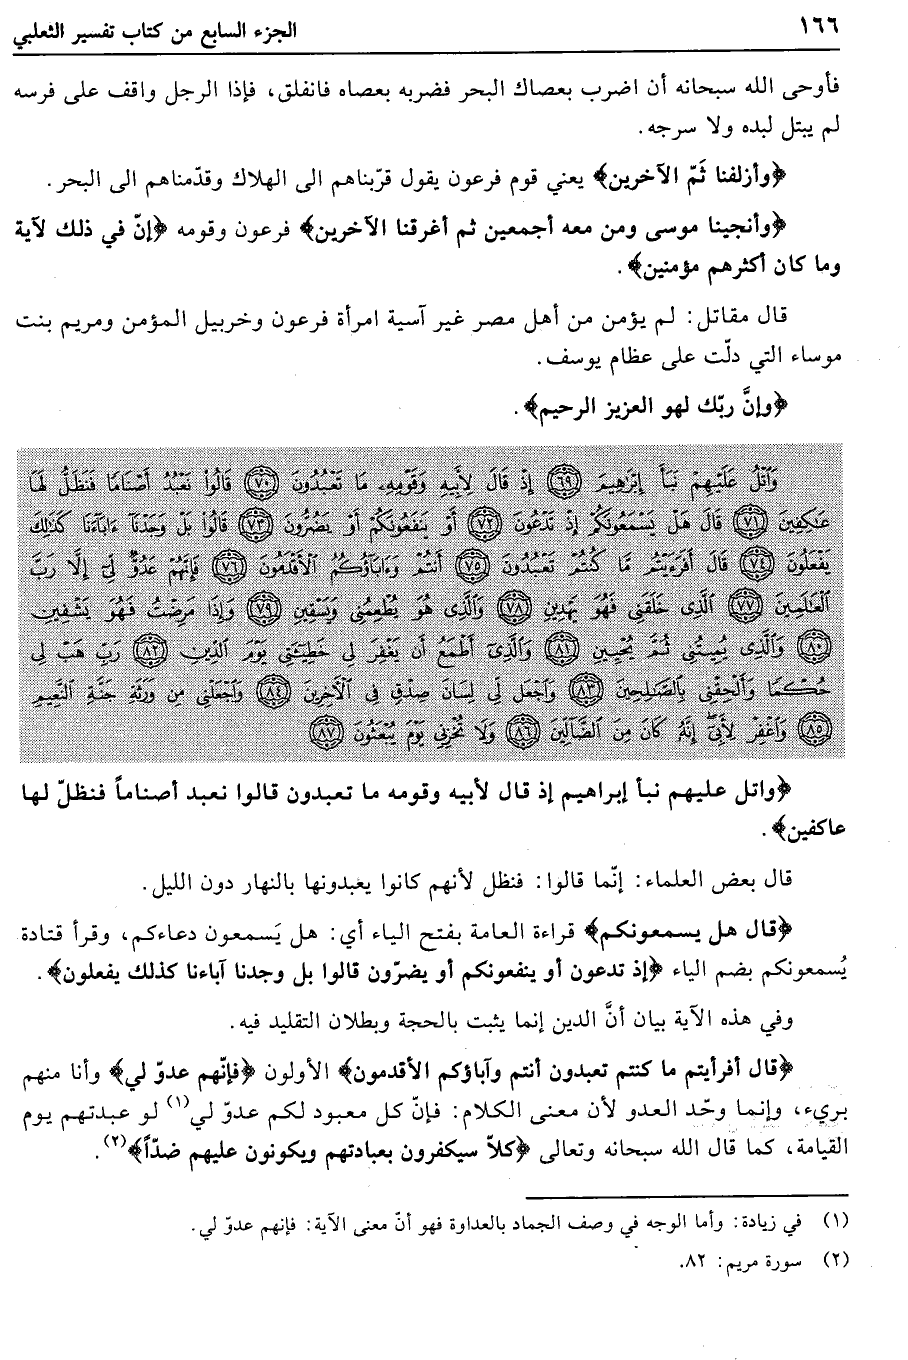 ١٦٦ الجزء السابع من كتاب تفسير الثعلبي
فأوحى الله سبحانه أن اضرب بعصاك البحر فضربه بعصاه فانفلق، فإذا الرجل واقف على فرسه
لم يبتل لبده ولا سرجه.
﴿وأزلفنا ثَمّ الآخرين﴾ يعني قوم فرعون يقول قرّبناهم الى الهلاك وقدّمناهم الى البحر.
﴿وأنجينا موسى ومن معه أجمعين ثم أغرقنا الآخرين﴾ فرعون وقومه ﴿إنّ في ذلك لآية
وما كان أكثرهم مؤمنين﴾.
قال مقاتل: لم يؤمن من أهل مصر غير آسية امرأة فرعون وخربيل المؤمن ومريم بنت
موساء التي دلّت على عظام يوسف.
﴿وإنَّ ربّك لهو العزيز الرحيم﴾.
وَٱتْلُ عَلَيْهِمْ نَبَأَ إِبْرَٰهِيمَ ﴿٦٩﴾ إِذْ قَالَ لِأَبِيهِ وَقَوْمِهِۦ مَا تَعْبُدُونَ ﴿٧٠﴾ قَالُوا۟ نَعْبُدُ أَصْنَامًا فَنَظَلُّ لَهَا
عَٰكِفِينَ ﴿٧١﴾ قَالَ هَلْ يَسْمَعُونَكُمْ إِذْ تَدْعُونَ ﴿٧٢﴾ أَوْ يَنفَعُونَكُمْ أَوْ يَضُرُّونَ ﴿٧٣﴾ قَالُوا۟ بَلْ وَجَدْنَآ ءَابَآءَنَا كَذَٰلِكَ
يَفْعَلُونَ ﴿٧٤﴾ قَالَ أَفَرَءَيْتُم مَّا كُنتُمْ تَعْبُدُونَ ﴿٧٥﴾ أَنتُمْ وَءَابَآؤُكُمُ ٱلْأَقْدَمُونَ ﴿٧٦﴾ فَإِنَّهُمْ عَدُوٌّ لِّىٓ إِلَّا رَبَّ
ٱلْعَٰلَمِينَ ﴿٧٧﴾ ٱلَّذِى خَلَقَنِى فَهُوَ يَهْدِينِ ﴿٧٨﴾ وَٱلَّذِى هُوَ يُطْعِمُنِى وَيَسْقِينِ ﴿٧٩﴾ وَإِذَا مَرِضْتُ فَهُوَ يَشْفِينِ
﴿٨٠﴾ وَٱلَّذِى يُمِيتُنِى ثُمَّ يُحْيِينِ ﴿٨١﴾ وَٱلَّذِىٓ أَطْمَعُ أَن يَغْفِرَ لِى خَطِيٓـَٔتِى يَوْمَ ٱلدِّينِ ﴿٨٢﴾ رَبِّ هَبْ لِى
حُكْمًا وَأَلْحِقْنِى بِٱلصَّٰلِحِينَ ﴿٨٣﴾ وَٱجْعَل لِّى لِسَانَ صِدْقٍ فِى ٱلْءَاخِرِينَ ﴿٨٤﴾ وَٱجْعَلْنِى مِن وَرَثَةِ جَنَّةِ ٱلنَّعِيمِ
﴿٨٥﴾ وَٱغْفِرْ لِأَبِىٓ إِنَّهُۥ كَانَ مِنَ ٱلضَّآلِّينَ ﴿٨٦﴾ وَلَا تُخْزِنِى يَوْمَ يُبْعَثُونَ ﴿٨٧﴾
﴿واتل عليهم نبأ إبراهيم إذ قال لأبيه وقومه ما تعبدون قالوا نعبد أصناماً فنظلّ لها
عاكفين﴾.
قال بعض العلماء: إنّما قالوا: فنظل لأنهم كانوا يعبدونها بالنهار دون الليل.
﴿قال هل يسمعونكم﴾ قراءة العامة بفتح الياء أي: هل يَسمعون دعاءكم، وقرأ قتادة
يُسمعونكم بضم الياء ﴿إذ تدعون أو ينفعونكم أو يضرّون قالوا بل وجدنا آباءنا كذلك يفعلون﴾.
وفي هذه الآية بيان أنَّ الدين إنما يثبت بالحجة وبطلان التقليد فيه.
﴿قال أفرأيتم ما كنتم تعبدون أنتم وآباؤكم الأقدمون﴾ الأولون ﴿فإنّهم عدوّ لي﴾ وأنا منهم
بريء، وإنما وحّد العدو لأن معنى الكلام: فإنّ كل معبود لكم عدوّ لي(١) لو عبدتهم يوم
القيامة، كما قال الله سبحانه وتعالى ﴿كلاّ سيكفرون بعبادتهم ويكونون عليهم ضدّاً﴾(٢).
(١) في زيادة: وأما الوجه في وصف الجماد بالعداوة فهو أنّ معنى الآية: فإنهم عدوّ لي.
(٢) سورة مريم: ٨٢.